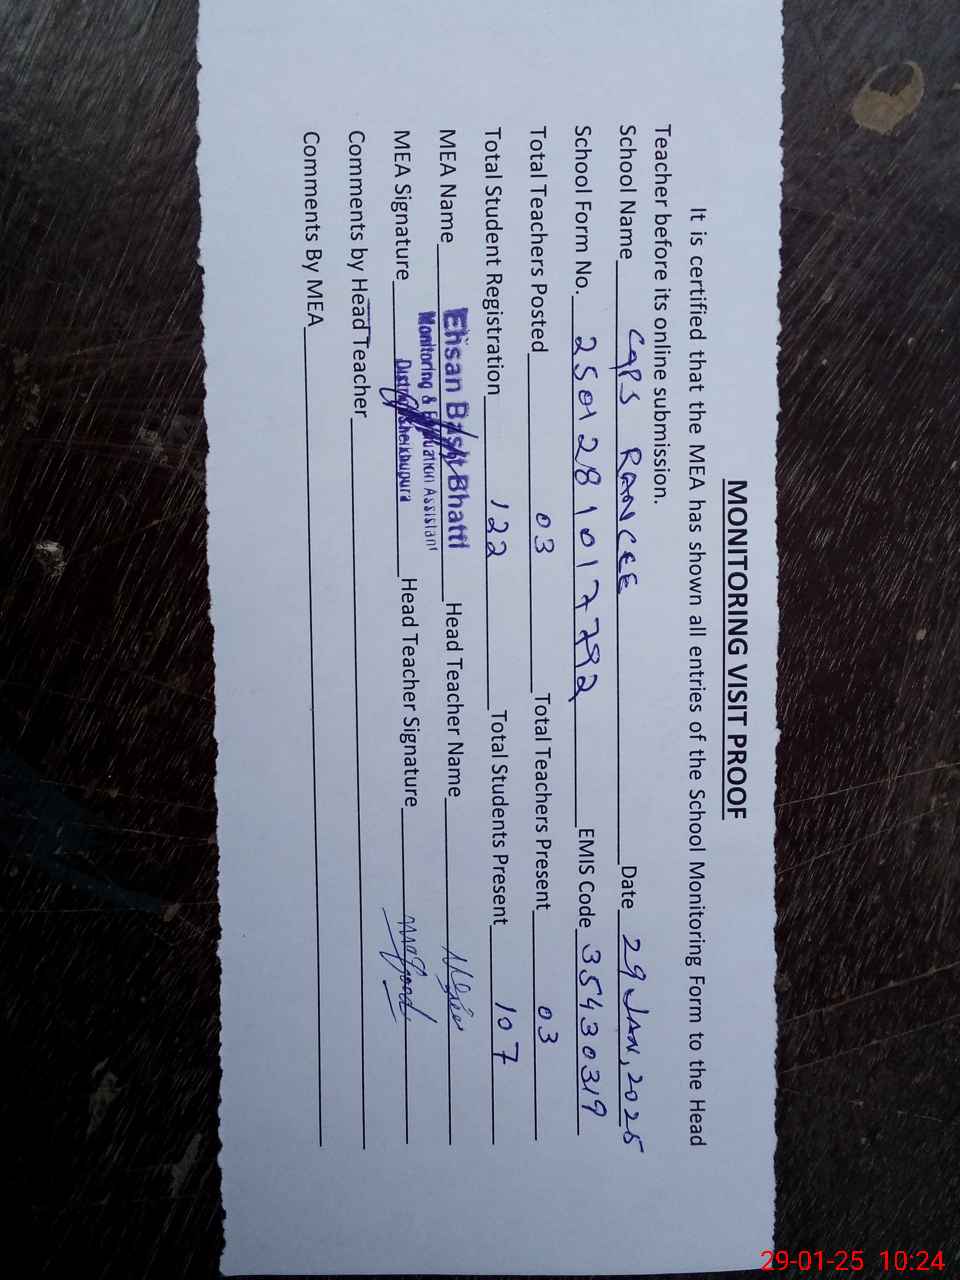 MONITORING VISIT PROOF
It is certified that the MEA has shown all entries of the School Monitoring Form to the Head
Teacher before its online submission.
School Name GGPS RANCEE Date 29 JAN, 2025
School Form No. 2501281017792 EMIS Code 35430319
Total Teachers Posted 03 Total Teachers Present 03
Total Student Registration 122 Total Students Present 107
MEA Name Ehsan Basit Bhatti Head Teacher Name
Monitoring & Evaluation Assistant
MEA Signature District Sheikhupura Head Teacher Signature
Comments by Head Teacher
Comments By MEA
29-01-25 10:24